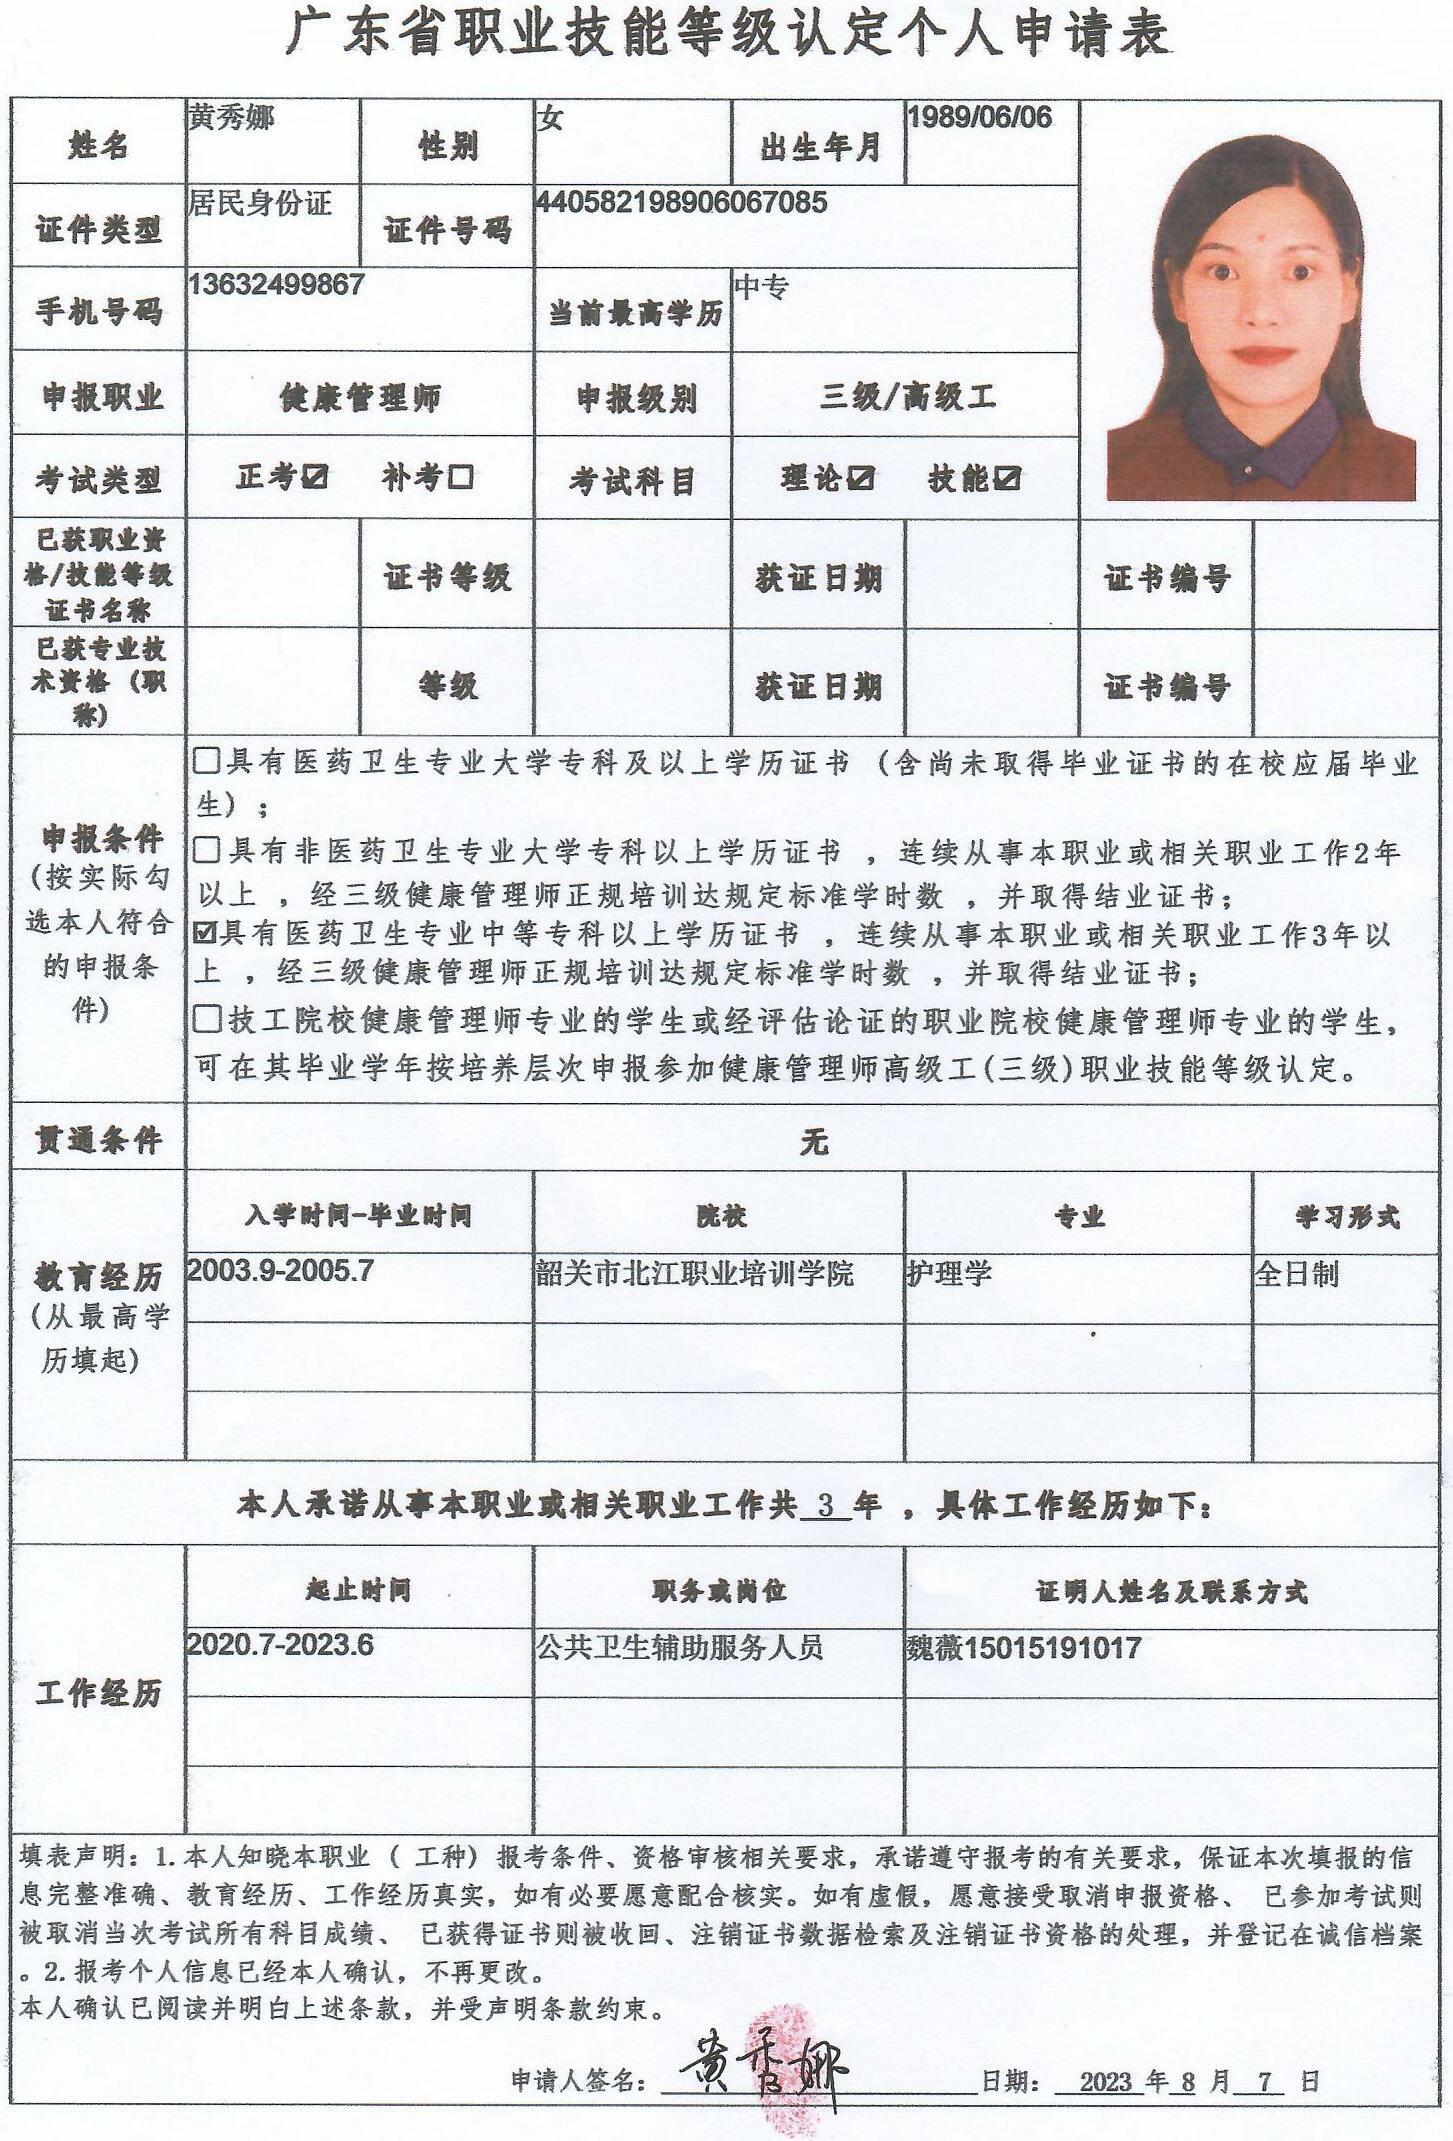 广东省职业技能等级认定个人申请表
姓名 黄秀娜 性别 女 出生年月 1989/06/06
证件类型 居民身份证 证件号码 440582198906067085
手机号码 13632499867 当前最高学历 中专
申报职业 健康管理师 申报级别 三级/高级工
考试类型 正考☑ 补考☐ 考试科目 理论☑ 技能☑
已获职业资
格/技能等级 证书等级 获证日期 证书编号
证书名称
已获专业技
术资格（职 等级 获证日期 证书编号
称）
申报条件
(按实际勾
选本人符合
的申报条
件)
☐具有医药卫生专业大学专科及以上学历证书（含尚未取得毕业证书的在校应届毕业
生）；
☐具有非医药卫生专业大学专科以上学历证书，连续从事本职业或相关职业工作2年
以上，经三级健康管理师正规培训达规定标准学时数，并取得结业证书；
☑具有医药卫生专业中等专科以上学历证书，连续从事本职业或相关职业工作3年以
上，经三级健康管理师正规培训达规定标准学时数，并取得结业证书；
☐技工院校健康管理师专业的学生或经评估论证的职业院校健康管理师专业的学生，
可在其毕业学年按培养层次申报参加健康管理师高级工(三级)职业技能等级认定。
贯通条件 无
教育经历
(从最高学
历填起)
入学时间-毕业时间 院校 专业 学习形式
2003.9-2005.7 韶关市北江职业培训学院 护理学 全日制
本人承诺从事本职业或相关职业工作共 3 年，具体工作经历如下：
工作经历
起止时间 职务或岗位 证明人姓名及联系方式
2020.7-2023.6 公共卫生辅助服务人员 魏薇15015191017
填表声明：1.本人知晓本职业（工种）报考条件、资格审核相关要求，承诺遵守报考的有关要求，保证本次填报的信
息完整准确、教育经历、工作经历真实，如有必要愿意配合核实。如有虚假，愿意接受取消申报资格、 已参加考试则
被取消当次考试所有科目成绩、 已获得证书则被收回、注销证书数据检索及注销证书资格的处理，并登记在诚信档案
。2.报考个人信息已经本人确认，不再更改。
本人确认已阅读并明白上述条款，并受声明条款约束。
申请人签名：黄秀娜 日期： 2023 年 8 月 7 日